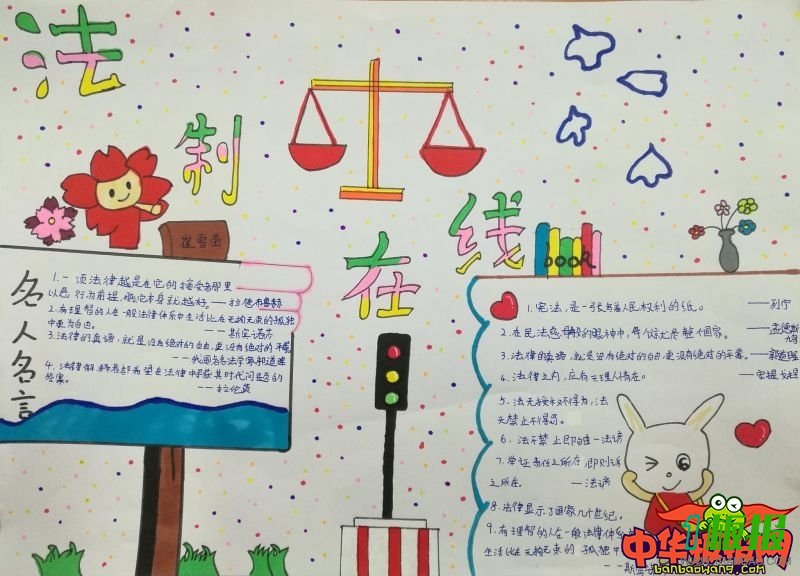 法
制
在
线
崔雪
book
名人名言
1.一项法律越是在它的接受者那里
以恶行为前提,那它本身就越好。——拉德布鲁赫
2.有理智的人在一般法律体系中生活比在无拘无束的孤独
中更为自由。
——斯宾诺莎
3.法律的真谛,就是没有绝对的自由,更没有绝对的平等。
——我国著名法学家郭道晖
4.法律解释者都希望在法律中寻获其时代问题的
答案。
——拉伦茨
1.宪法,是一张写着人民权利的纸。 ——列宁
2.在民法慈母般的眼神中,每个人就是整个国家。 ——孟德斯鸠
3.法律的真谛,就是没有绝对的自由,更没有绝对的平等。——郭道晖
4.法律之内,应有天理人情在。
5.法无授权不得为,法
无禁止不得罚。
6.法不禁止即自由—法谚
7.举证责任之所在,即则诉
之所在。 —法谚
8.法律显示了国家几个世纪,
9.有理智的人在一般法律体系
生活比在无拘束的孤独中
中华
banbaowang.com